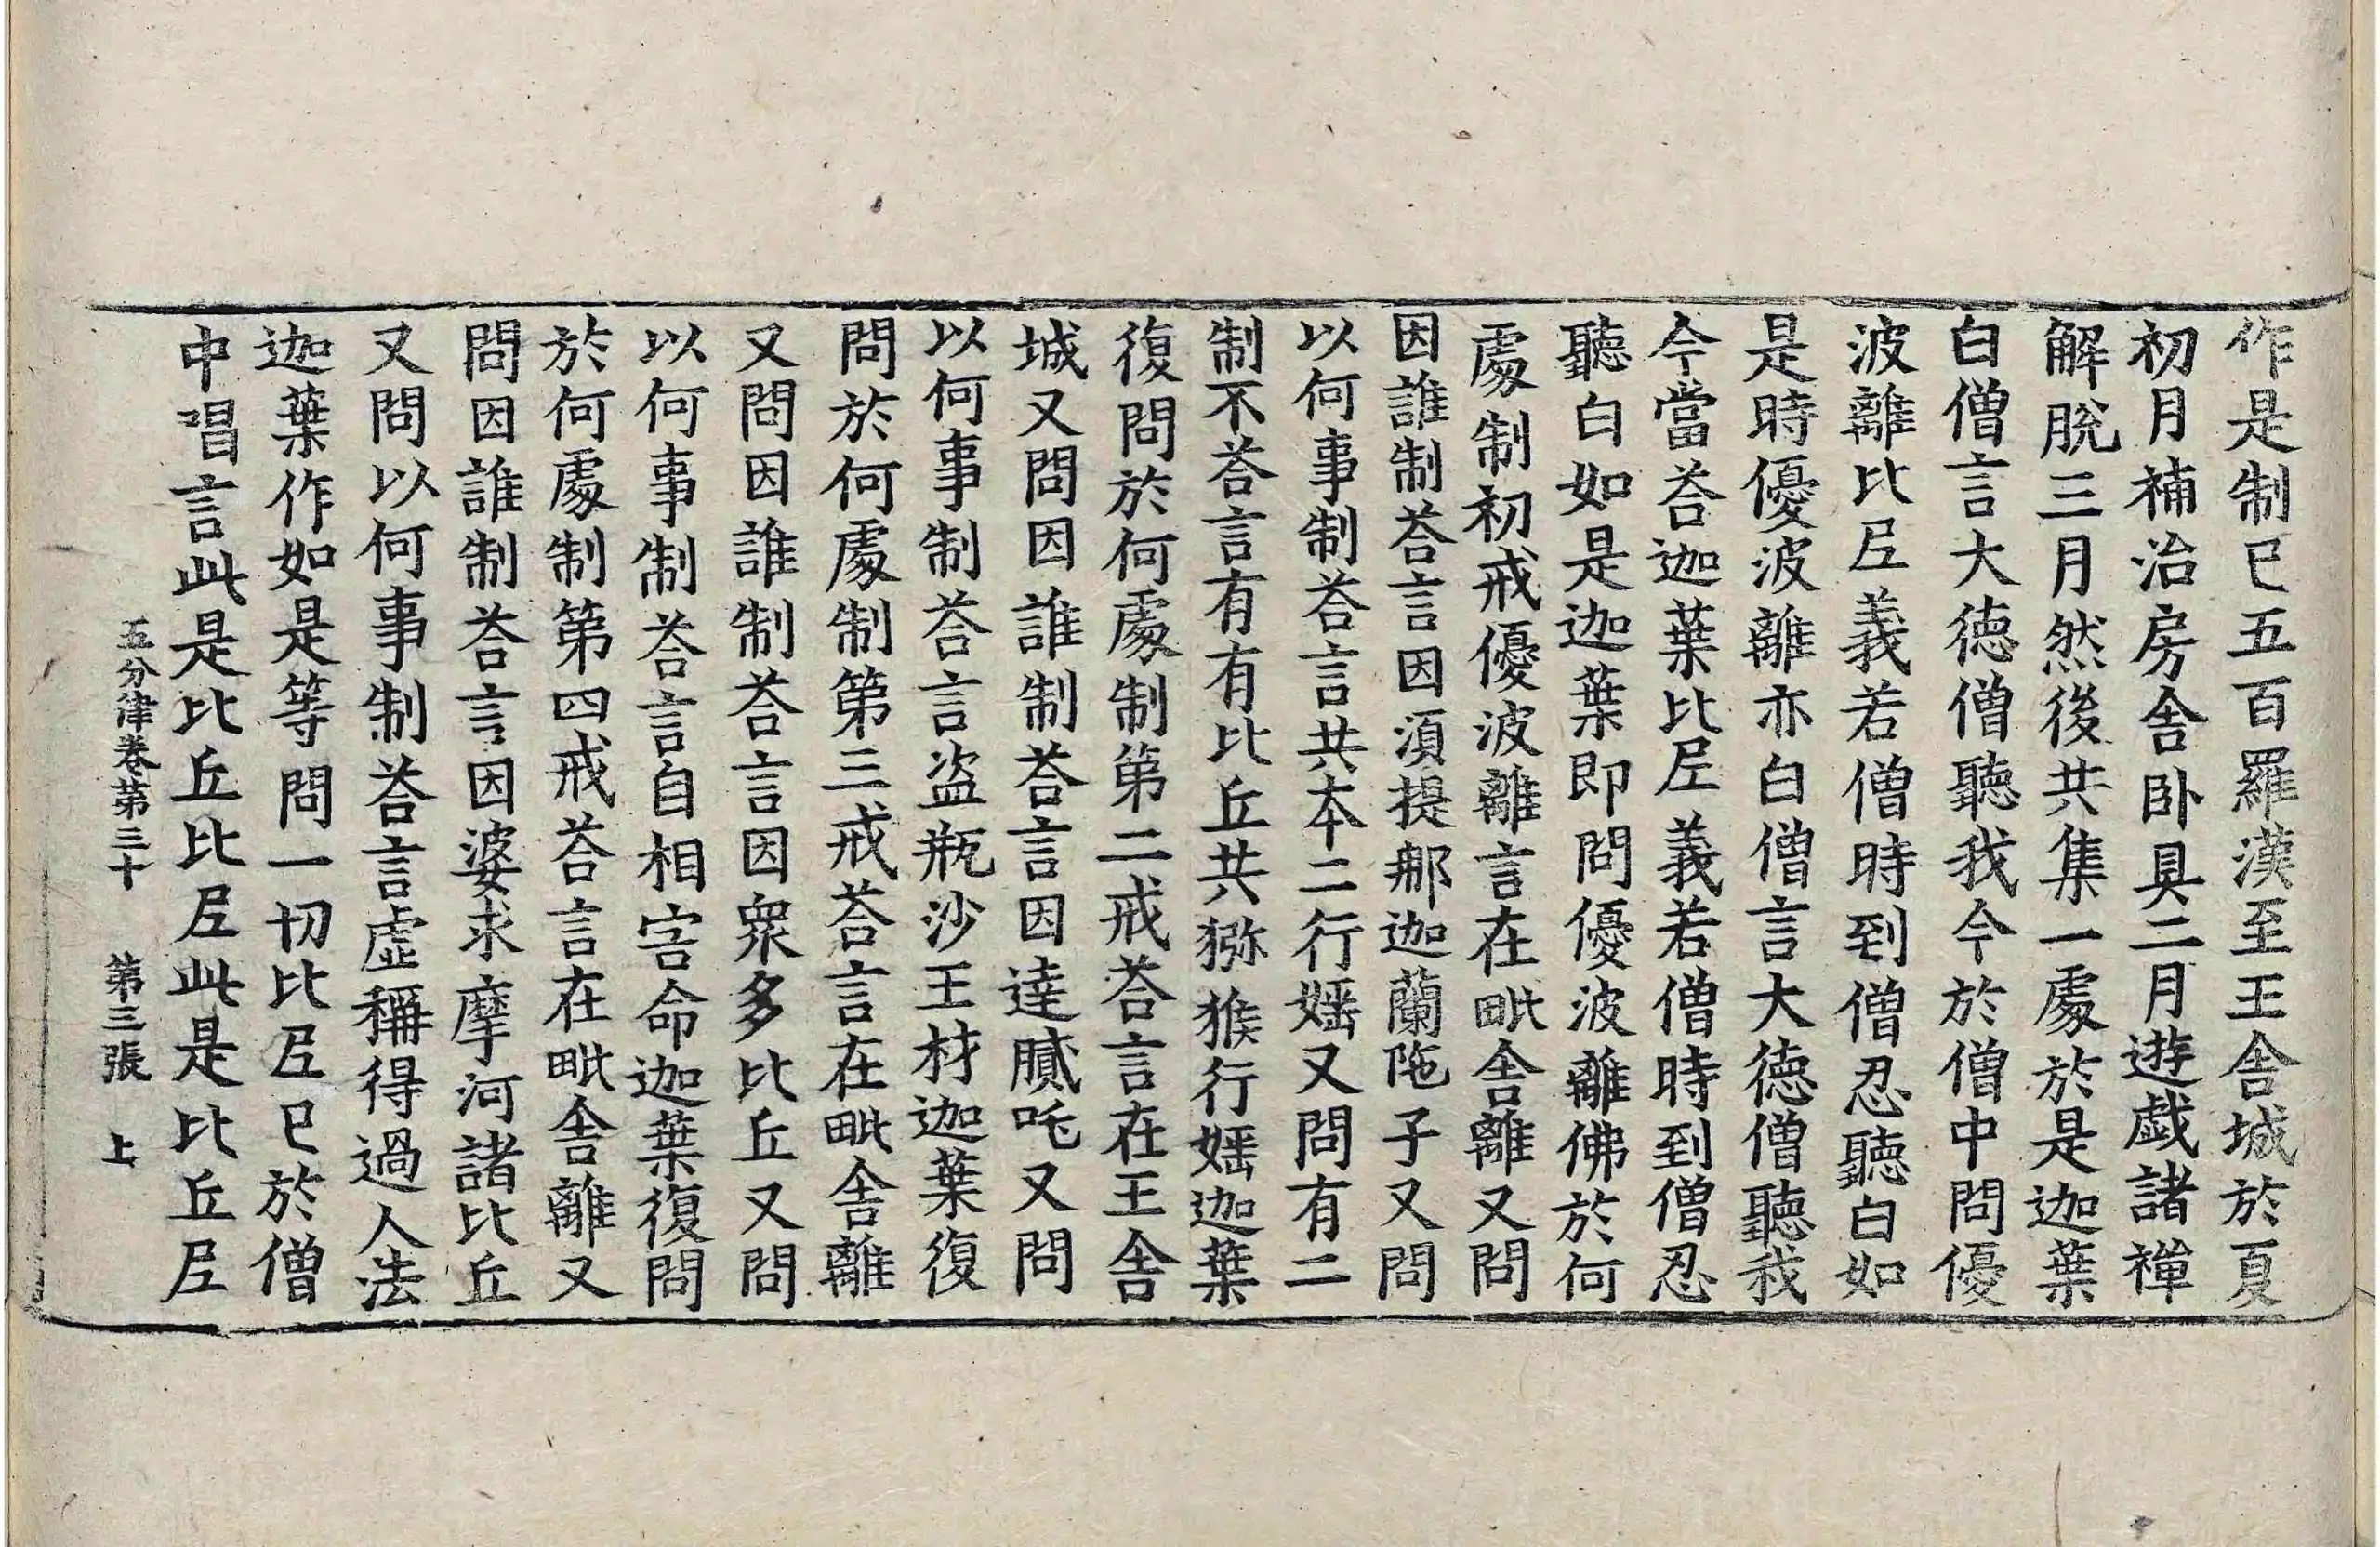 作是制已五百羅漢至王舍城於夏
初月補治房舍卧具二月遊戯諸禪
解脫三月然後共集一處於是迦葉
白僧言大徳僧聽我今於僧中問優
波離比𡰱義若僧時到僧忍聽白如
是時優波離亦白僧言大徳僧聽我
今當荅迦葉比𡰱義若僧時到僧忍
聽白如是迦葉即問優波離佛於何
處制初戒優波離言在毗舍離又問
因誰制荅言因湏提那迦蘭陁子又問
以何事制荅言共本二行婬又問有二
制不荅言有有比丘共猕猴行婬迦葉
復問於何處制第二戒荅言在王舍
城又問因誰制荅言因達膩吒又問
以何事制荅言盜瓶沙王材迦葉復
問於何處制第三戒荅言在毗舍離
又問因誰制荅言因衆多比丘又問
以何事制荅言自相害命迦葉復問
於何處制第四戒荅言在毗舍離又
問因誰制荅言因婆求摩河諸比丘
又問以何事制荅言虛稱得過人法
迦葉作如是等問一切比𡰱已於僧
中唱言此是比丘比𡰱此是比丘𡰱
五分律卷第三十 第三張 上